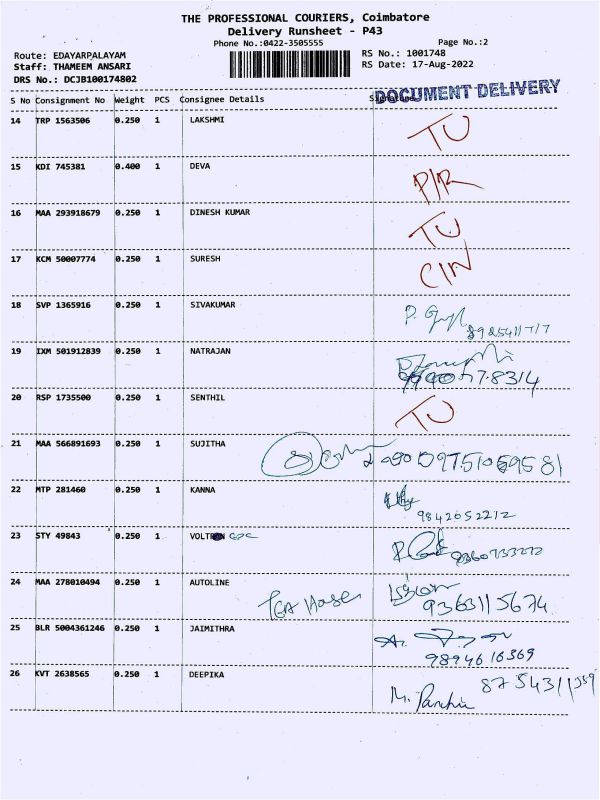 THE PROFESSIONAL COURIERS, Coimbatore
Delivery Runsheet - P43
Phone No.:0422-3505555 Page No.:2
Route: EDAYARPALAYAM RS No.: 1001748
Staff: THAMEEM ANSARI RS Date: 17-Aug-2022
DRS No.: DCJB100174802
DOCUMENT DELIVERY
S No Consignment No Weight PCS Consignee Details
14 TRP 1563506 0.250 1 LAKSHMI TU
15 KDI 745381 0.400 1 DEVA P/R
16 MAA 293918679 0.250 1 DINESH KUMAR TU
17 KCM 50007774 0.250 1 SURESH C/N
18 SVP 1365916 0.250 1 SIVAKUMAR
19 IXM 501912839 0.250 1 NATRAJAN
20 RSP 1735500 0.250 1 SENTHIL TU
21 MAA 566891693 0.250 1 SUJITHA
22 MTP 281460 0.250 1 KANNA
9842052212
23 STY 49843 0.250 1 VOLTRON
24 MAA 278010494 0.250 1 AUTOLINE
9363115674
25 BLR 5004361246 0.250 1 JAIMITHRA
9894616369
26 KVT 2638565 0.250 1 DEEPIKA